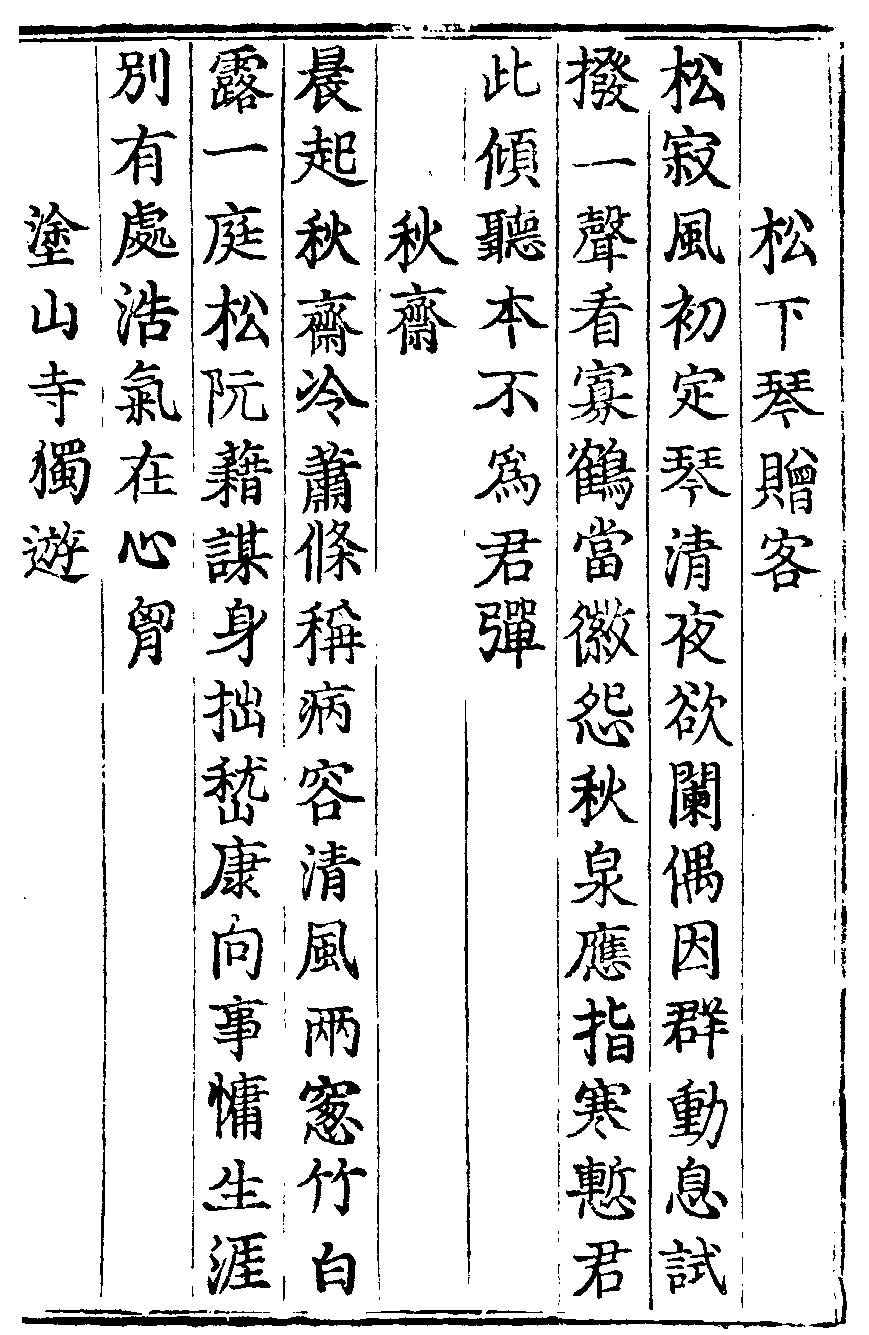 松下琴贈客
松寂風初定琴清夜欲闌偶因群動息試
撥一聲看寡鶴當徽怨秋泉應指寒慙君
此傾聽本不為君彈
秋齋
晨起秋齋冷蕭條稱病容清風兩窓竹白
露一庭松阮藉謀身拙嵇康向事慵生涯
別有處浩氣在心胷
塗山寺獨遊